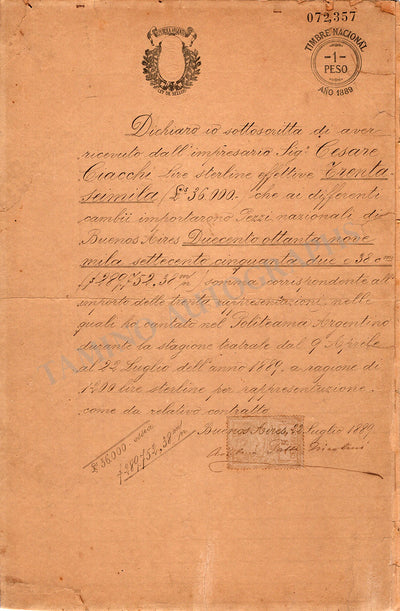 072,357
TIMBRE NACIONAL
1
PESO
AÑO 1889
LEY DE SELLOS
Dichiaro io sottoscritta di aver
ricevuto dall'impresario Sigr Cesare
Ciacchi lire sterline effettive Trenta-
seimila (£s 36000.-) che ai differenti
cambii importarono Pezzi nazionali di
Buenos Aires Duecento ottantanove
mila settecento cinquanta due e 38 c m/n
(₱ 289,752.38 m/n) somma corrispondente all'
importo delle trenta rappresentazioni, nelle
quali ho cantato nel Politeama Argentino
durante la stagione teatrale dal 9 Aprile
al 22 Luglio dell'anno 1889, a ragione di
1200 lire sterline per rappresentazione
come da relativo contratto.
Buenos Aires, 22 Luglio 1889
£ 36000 ossia
₱ 289,752.38 m/n
Adelina Patti Nicolini
TAMINO AUTOGRAPHS